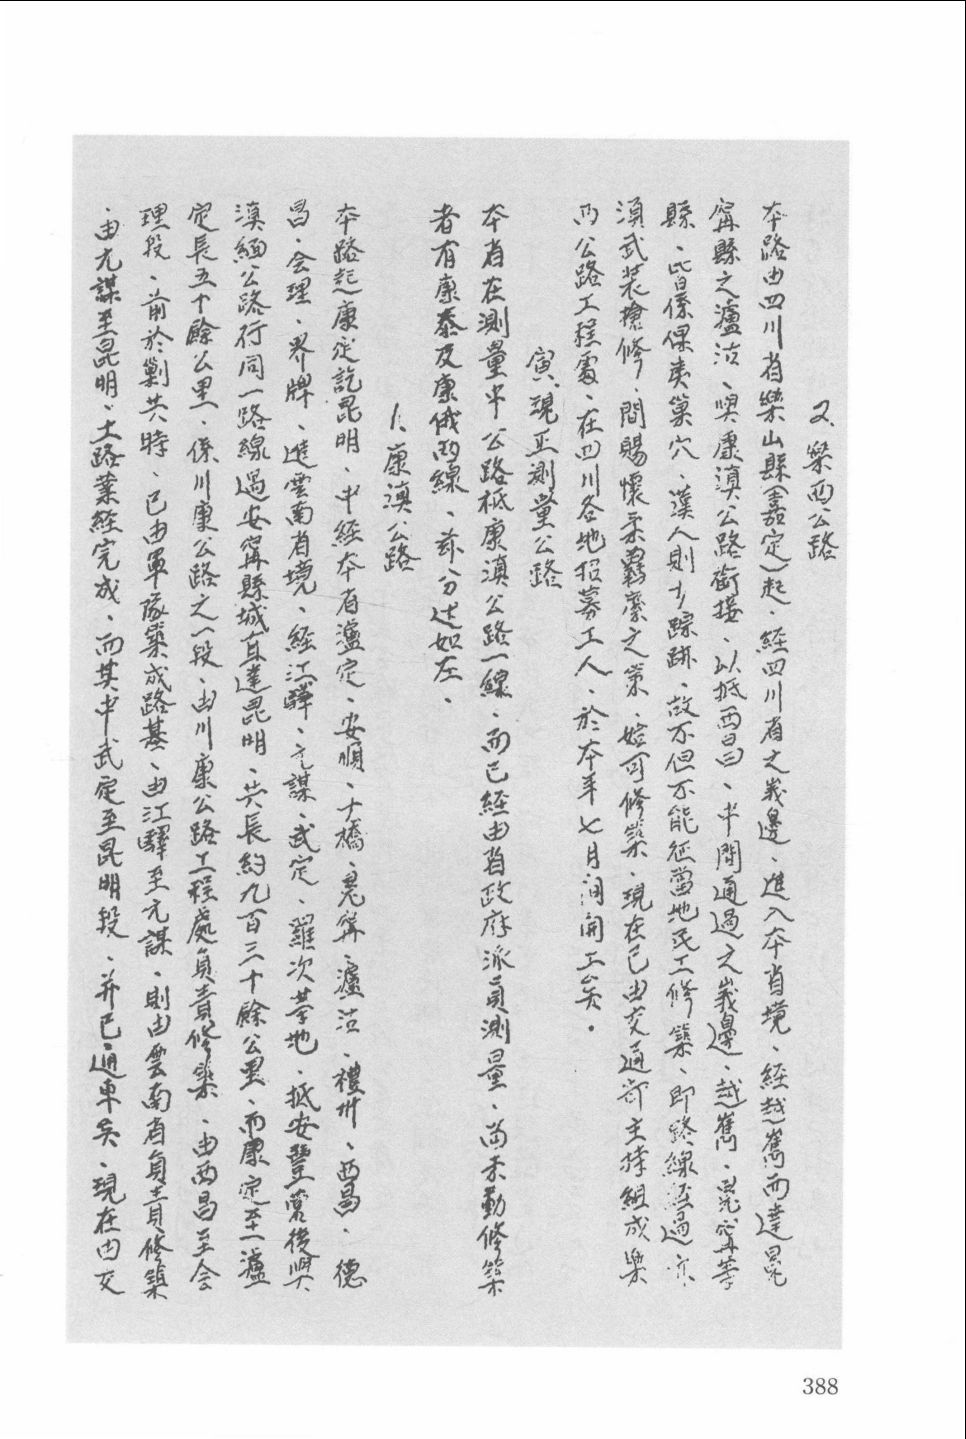 2. 樂西公路
本路由四川省樂山縣(嘉定)起、經四川省之峩邊、進入本省境、經越嶲而達冕
甯縣之瀘沽、與康滇公路銜接、以抵西昌、中間通過之峩邊、越嶲、冕甯等
縣、皆係倮夷巢穴、漢人則少踪跡、故不但不能征當地民工修築、即路線經過亦
須武裝搶修、間賜懷柔羈縻之策、始可修築、現在已由交通部主持組成樂
西公路工程處、在四川各地招募工人、於本年七月間開工矣。
寅、現正測量公路
本省在測量中公路祗康滇公路一線、而已經由省政府派員測量、尚未動修築
者有康泰及康俄兩線、茲分述如左、
1、康滇公路
本路起康定訖昆明、中經本省瀘定、安順、大橋、冕甯、瀘沽、禮州、西昌、德
昌、会理、界牌、進雲南省境、經江驛、元謀、武定、羅次等地、抵安豐營後與
滇緬公路行同一路線過安甯縣城直達昆明、共長約九百三十餘公里、而康定至瀘
定長五十餘公里、係川康公路之一段、由川康公路工程處負責修築、由西昌至会
理段、前於剿共時、已由軍隊築成路基、由江驛至元謀、則由雲南省負責修築
、由元謀至昆明、土路業經完成、而其中武定至昆明段、并已通車矣、現在由交
388